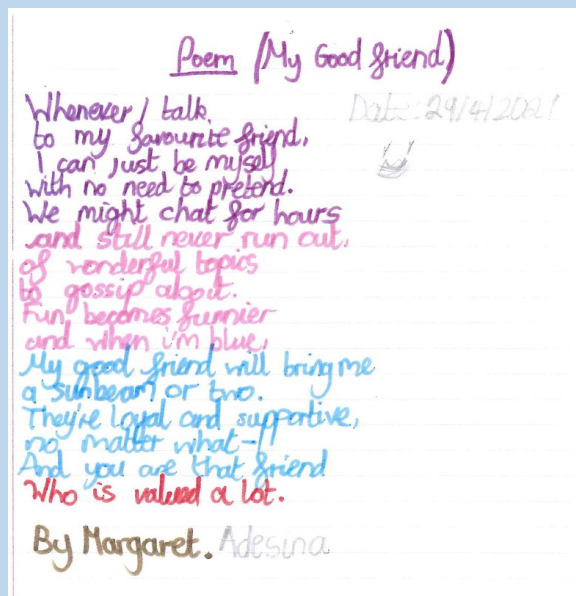 Poem (My Good friend)
Date: 29/4/2021
Whenever I talk,
to my favourite friend,
I can just be myself
with no need to pretend.
We might chat for hours
and still never run out,
of wonderful topics
to gossip about.
Fun becomes funnier
and when i'm blue,
My good friend will bring me
a sunbeam or two.
They're loyal and supportive,
no matter what-
And you are that friend
Who is valued a lot.
By Margaret. Adesina